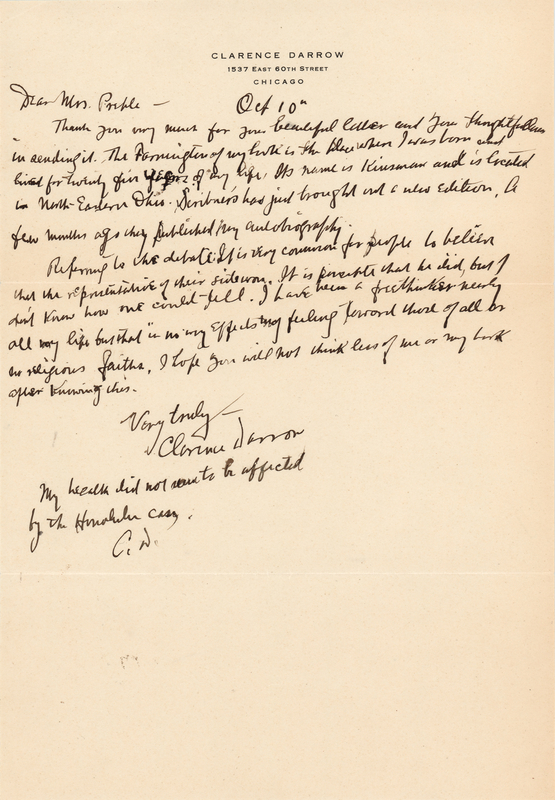 CLARENCE DARROW
1537 EAST 60TH STREET
CHICAGO
Dear Mrs. Preble –
Oct 10th
Thank you very much for your beautiful letter and your thoughtfulness
in sending it. The Farmington of my book is the place where I was born and
lived for twenty five years of my life. Its name is Kinsman and is located
in North-Eastern Ohio. Scribners has just brought out a new edition, A
few months ago they published my autobiography.
Referring to the debate. It is very common for people to believe
that the representative of their side won. It is possible that he did, but I
don't know how one could tell. I have been a freethinker nearly
all my life but that in no way effects my feeling toward those of all or
no religious faiths. I hope you will not think less of me or my book
after knowing this.
Very truly –
Clarence Darrow
My health did not seem to be affected
by the Honolulu case.
C. D.